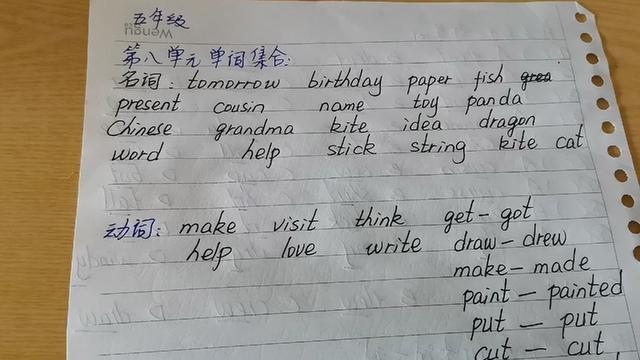 五年级
第八单元单词集合:
名词: tomorrow birthday paper fish
present cousin name toy panda
Chinese grandma kite idea dragon
word help stick string kite cat
动词: make visit think get - got
help love write draw - drew
make - made
paint - painted
put - put
cut - cut